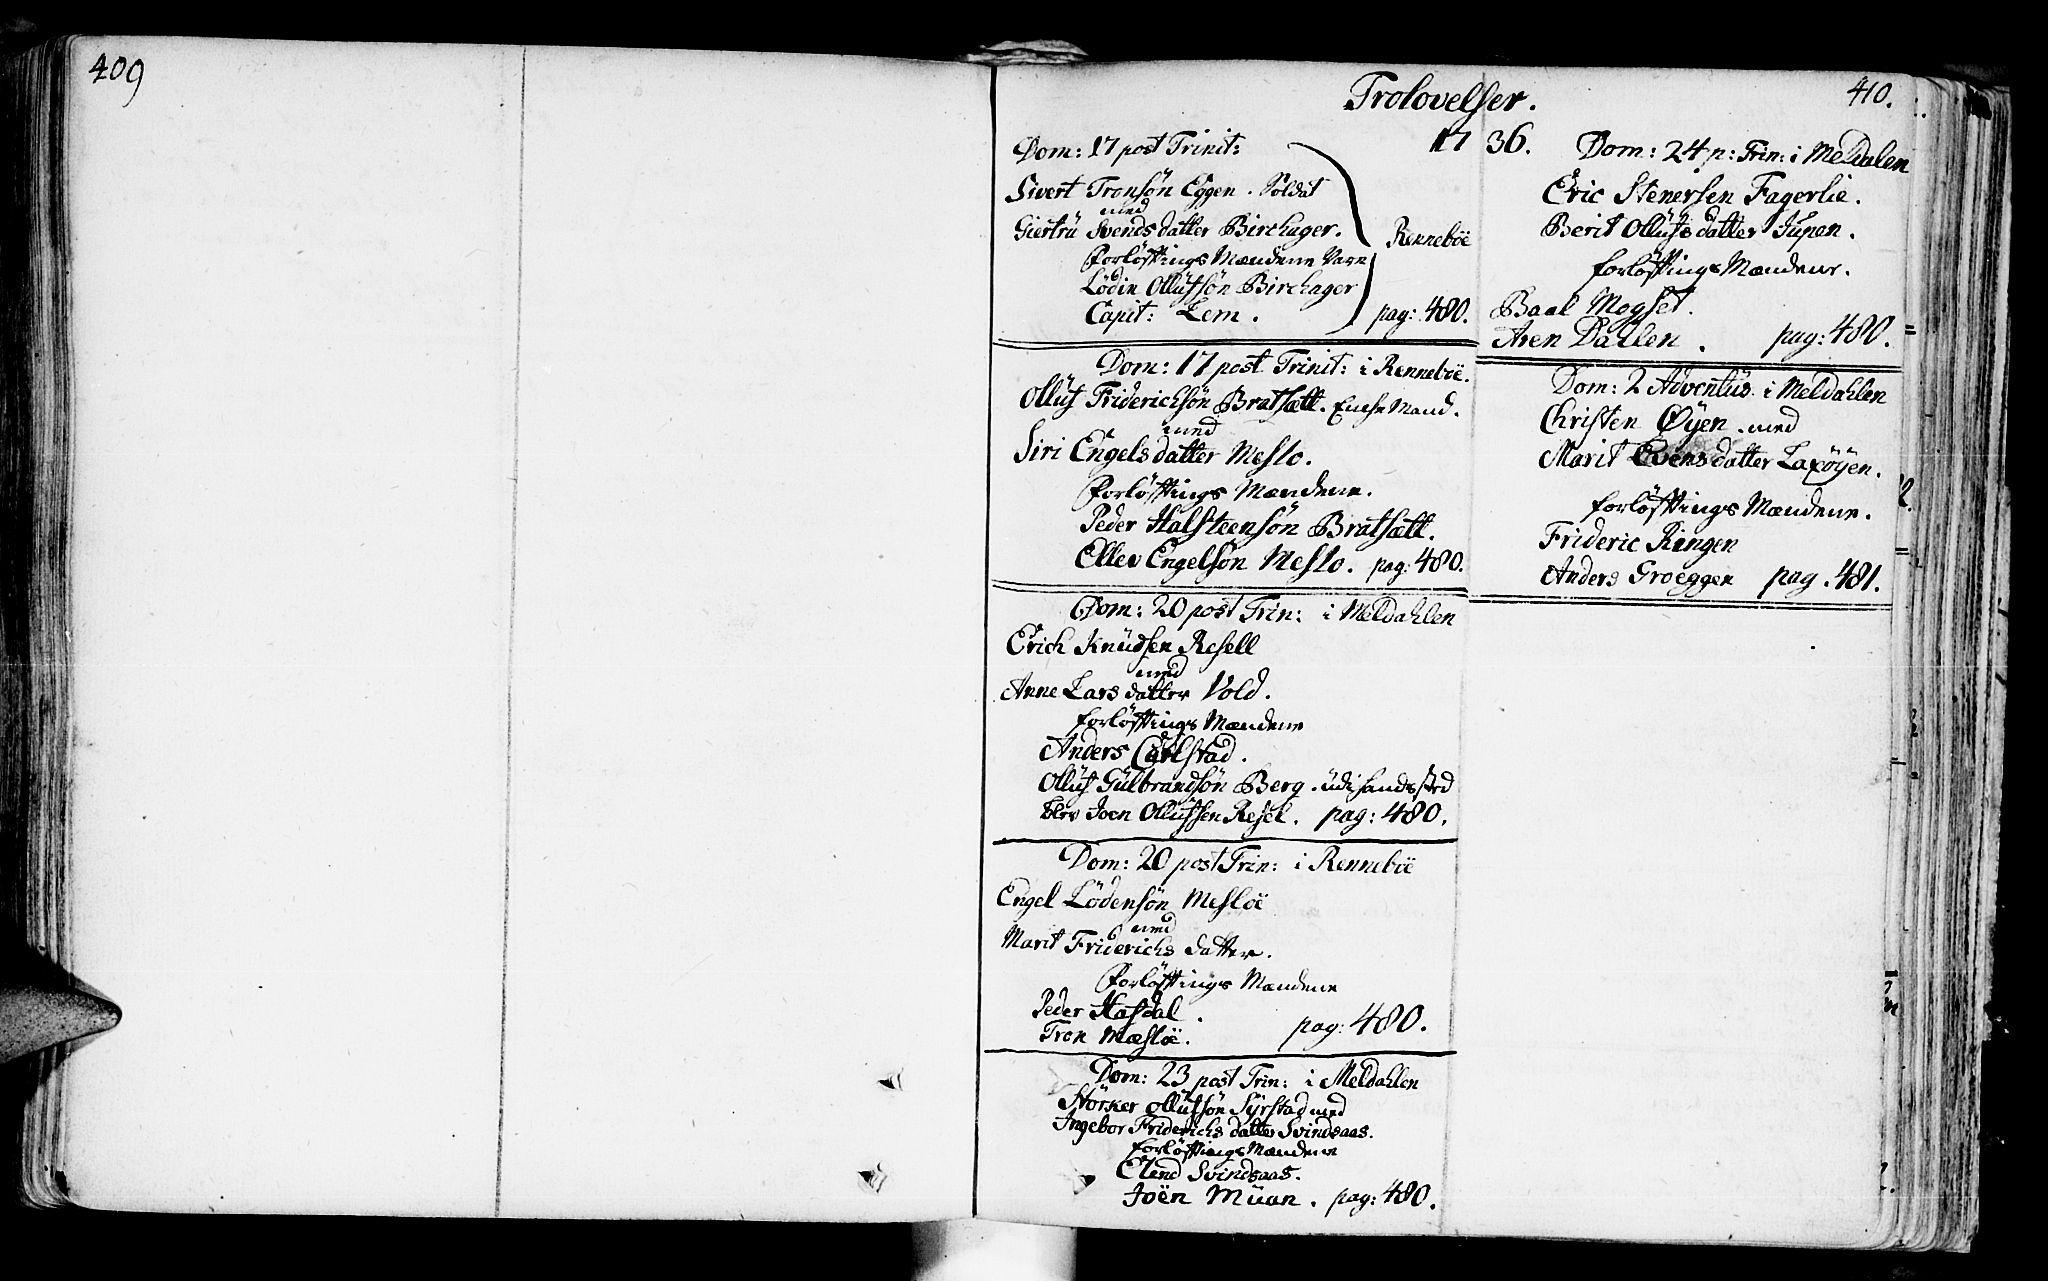 409
Trolovelser.
410.
1736.
Dom: 17 post Trinit:
Sivert Tronsön Eggen. Soldat
med
Giertrü Svendsdatter Birchager.
Renneböe
Forlöftings Mændene Vare
Lödin Ollüfsön Birchager
Capit: Lem. pag: 480.
Dom: 17 post Trinit: i Renneböe.
Ollüf Friderichsön Bratsætt. Enche Mand.
med
Siri Engelsdatter Meslo.
Forlöftings Mændene.
Peder Halsteensön Bratsætt.
Ellev Engelsön Meslo. pag: 480.
Dom: 20 post Trin: i Meldahlen
Erich Knüdsen Resell
med
Anne Larsdatter Vold.
forlöftings Mændene
Anders Carlstad.
Ollüf Gülbrandsön Berg. üdi hands sted
blev Joen Ollüfsen Resel. pag: 480.
Dom: 20 post Trin: i Renneböe
Engel Lödensön Meslöe
med
Marit Friderichs datter.
Forlöftings Mændene
Peder Hasdal.
Tron Mæslöe. pag: 480.
Dom: 23 post Trin: i Meldahlen
Störker Ollüfsön Syrstad med
Ingebor Friderichs datter Svindsaas.
forlöftings Mændene
Elend Svindsaas.
Joën Müan. pag: 480.
Dom: 24 p: Trin: i Meldalen
Eric Stenersen Fagerlie.
Berit Ollüfsdatter Jupen.
forlöftings Mændene.
Baal Mogset.
Aren Dahlen. pag: 480.
Dom: 2 Adventüs i Meldahlen
Christen Øyen. med
Marit Evensdatter Laxöyen.
forlöftings Mændene.
Frideric Ringen
Anders Groeggen pag. 481.